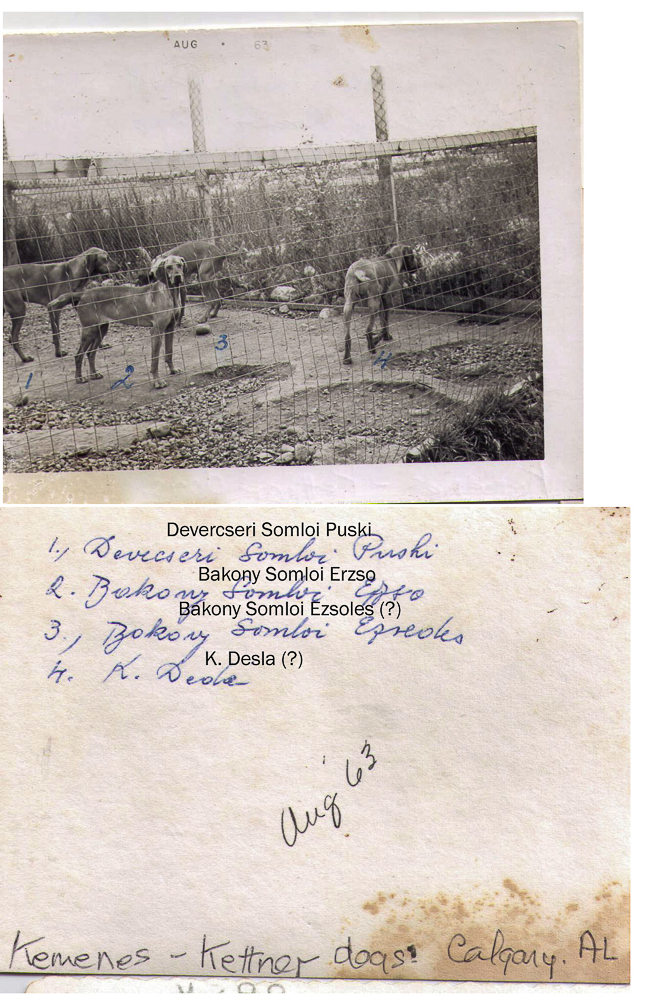 AUG · 63
1
2
3
4
Devercseri Somloi Puski
1., Devecseri Somloi Puski
Bakony Somloi Erzso
2. Bakony Somloi
Bakony Somloi Ezsoles (?)
3., Bakony Somloi
K. Desla (?)
4. K.
Aug 63
Kemenes - Kettner dogs: Calgary. AL